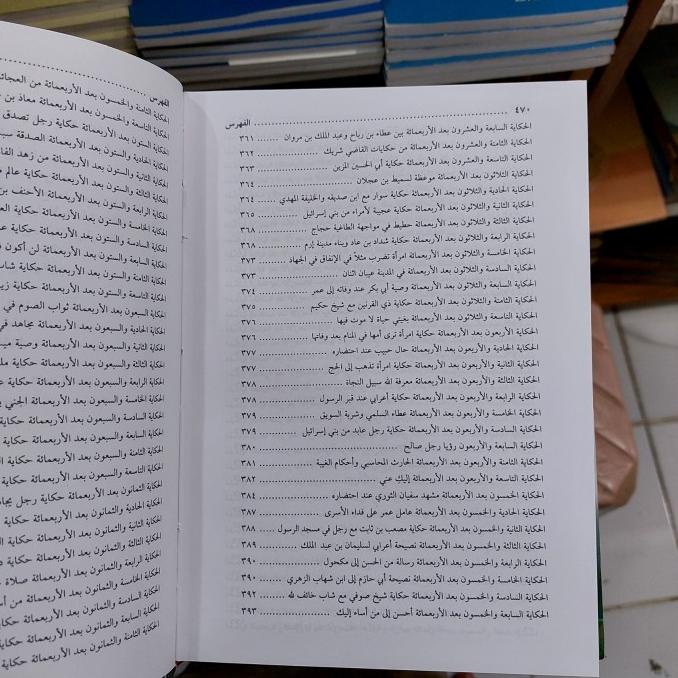 ٤٧٠ الفهرس
الحكاية السابعة والعشرون بعد الأربعمائة بين عطاء بن رباح وعبد الملك بن مروان ........ ٣٦١
الحكاية الثامنة والعشرون بعد الأربعمائة من حكايات القاضي شريك ........ ٣٦٢
الحكاية التاسعة والعشرون بعد الأربعمائة حكاية أبي الحسين المزين ........ ٣٦٣
الحكاية الثلاثون بعد الأربعمائة موعظة لسميط بن عجلان ........ ٣٦٤
الحكاية الحادية والثلاثون بعد الأربعمائة حكاية سوار مع ابن صديقه والخليفة المهدي ........ ٣٦٤
الحكاية الثانية والثلاثون بعد الأربعمائة حكاية عجيبة لأمراء من بني إسرائيل ........ ٣٦٥
الحكاية الثالثة والثلاثون بعد الأربعمائة حطيط في مواجهة الطاغية حجاج ........ ٣٦٨
الحكاية الرابعة والثلاثون بعد الأربعمائة حكاية شداد بن عاد وبناء مدينة إرم ........ ٣٦٨
الحكاية الخامسة والثلاثون بعد الأربعمائة امرأة تضرب مثلاً في الإنفاق في الجهاد ........ ٣٧٣
الحكاية السادسة والثلاثون بعد الأربعمائة في المدينة عيبان اثنان ........ ٣٧٣
الحكاية السابعة والثلاثون بعد الأربعمائة وصية أبي بكر عند وفاته إلى عمر ........ ٣٧٤
الحكاية الثامنة والثلاثون بعد الأربعمائة حكاية ذي القرنين مع شيخ حكيم ........ ٣٧٥
الحكاية التاسعة والثلاثون بعد الأربعمائة بغيتي حياة لا موت فيها ........ ٣٧٦
الحكاية الأربعون بعد الأربعمائة حكاية امرأة ترى أمها في المنام بعد وفاتها ........ ٣٧٦
الحكاية الحادية والأربعون بعد الأربعمائة حال حبيب عند احتضاره ........ ٣٧٧
الحكاية الثانية والأربعون بعد الأربعمائة حكاية امرأة تذهب إلى الحج ........ ٣٧٧
الحكاية الثالثة والأربعون بعد الأربعمائة معرفة الله سبيل النجاة ........ ٣٧٨
الحكاية الرابعة والأربعون بعد الأربعمائة حكاية أعرابي عند قبر الرسول ........ ٣٧٨
الحكاية الخامسة والأربعون بعد الأربعمائة عطاء السلمي وشربة السويق ........ ٣٧٩
الحكاية السادسة والأربعون بعد الأربعمائة حكاية رجل عابد من بني إسرائيل ........ ٣٧٩
الحكاية السابعة والأربعون رؤيا رجل صالح ........ ٣٨٠
الحكاية الثامنة والأربعون بعد الأربعمائة الحارث المحاسبي وأحكام الغيبة ........ ٣٨١
الحكاية التاسعة والأربعون بعد الأربعمائة إليك عني ........ ٣٨٢
الحكاية الخمسون بعد الأربعمائة مشهد سفيان الثوري عند احتضاره ........ ٣٨٤
الحكاية الحادية والخمسون بعد الأربعمائة عامل عمر على فداء الأسرى ........ ٣٨٧
الحكاية الثانية والخمسون بعد الأربعمائة حكاية مصعب بن ثابت مع رجل في مسجد الرسول ..... ٣٨٨
الحكاية الثالثة والخمسون بعد الأربعمائة نصيحة أعرابي لسليمان بن عبد الملك ........ ٣٨٩
الحكاية الرابعة والخمسون بعد الأربعمائة رسالة من الحسن إلى مكحول ........ ٣٩٠
الحكاية الخامسة والخمسون بعد الأربعمائة نصيحة أبي حازم إلى ابن شهاب الزهري ........ ٣٩٠
الحكاية السادسة والخمسون بعد الأربعمائة حكاية شيخ صوفي مع شاب خائف لله ........ ٣٩٢
الحكاية السابعة والخمسون بعد الأربعمائة أحسن إلى من أساء إليك ........ ٣٩٣
الفهرس
الحكاية الثامنة والخمسون بعد الأربعمائة من
الحكاية التاسعة والخمسون بعد الأربعمائة معاذ بن
الحكاية الستون بعد الأربعمائة حكاية رجل تصدق
الحكاية الحادية والستون بعد الأربعمائة الصدقة
الحكاية الثانية والستون بعد الأربعمائة من زهد
الحكاية الثالثة والستون بعد الأربعمائة حكاية عالم
الحكاية الرابعة والستون بعد الأربعمائة الأحنف بن
الحكاية الخامسة والستون بعد الأربعمائة حكاية
الحكاية السادسة والستون بعد الأربعمائة حكاية
الحكاية السابعة والستون بعد الأربعمائة لن أكون
الحكاية الثامنة والستون بعد الأربعمائة حكاية شاب
الحكاية التاسعة والستون بعد الأربعمائة حكاية
الحكاية السبعون بعد الأربعمائة ثواب الصوم في
الحكاية الحادية والسبعون بعد الأربعمائة عاهد في
الحكاية الثانية والسبعون بعد الأربعمائة وصية
الحكاية الثالثة والسبعون بعد الأربعمائة حكاية
الحكاية الرابعة والسبعون بعد الأربعمائة حكاية
الحكاية الخامسة والسبعون بعد الأربعمائة الجني
الحكاية السادسة والسبعون بعد الأربعمائة حكاية
الحكاية السابعة والسبعون بعد الأربعمائة حكاية
الحكاية الثامنة والسبعون بعد الأربعمائة حكاية
الحكاية التاسعة والسبعون بعد الأربعمائة حكاية
الحكاية الثمانون بعد الأربعمائة حكاية رجل
الحكاية الحادية والثمانون بعد الأربعمائة حكاية
الحكاية الثانية والثمانون بعد الأربعمائة حكاية
الحكاية الثالثة والثمانون بعد الأربعمائة حكاية
الحكاية الرابعة والثمانون بعد الأربعمائة صلاة
الحكاية الخامسة والثمانون بعد الأربعمائة من
الحكاية السادسة والثمانون بعد الأربعمائة حكاية
الحكاية السابعة والثمانون بعد الأربعمائة حكاية
الحكاية الثامنة والثمانون بعد الأربعمائة حكاية